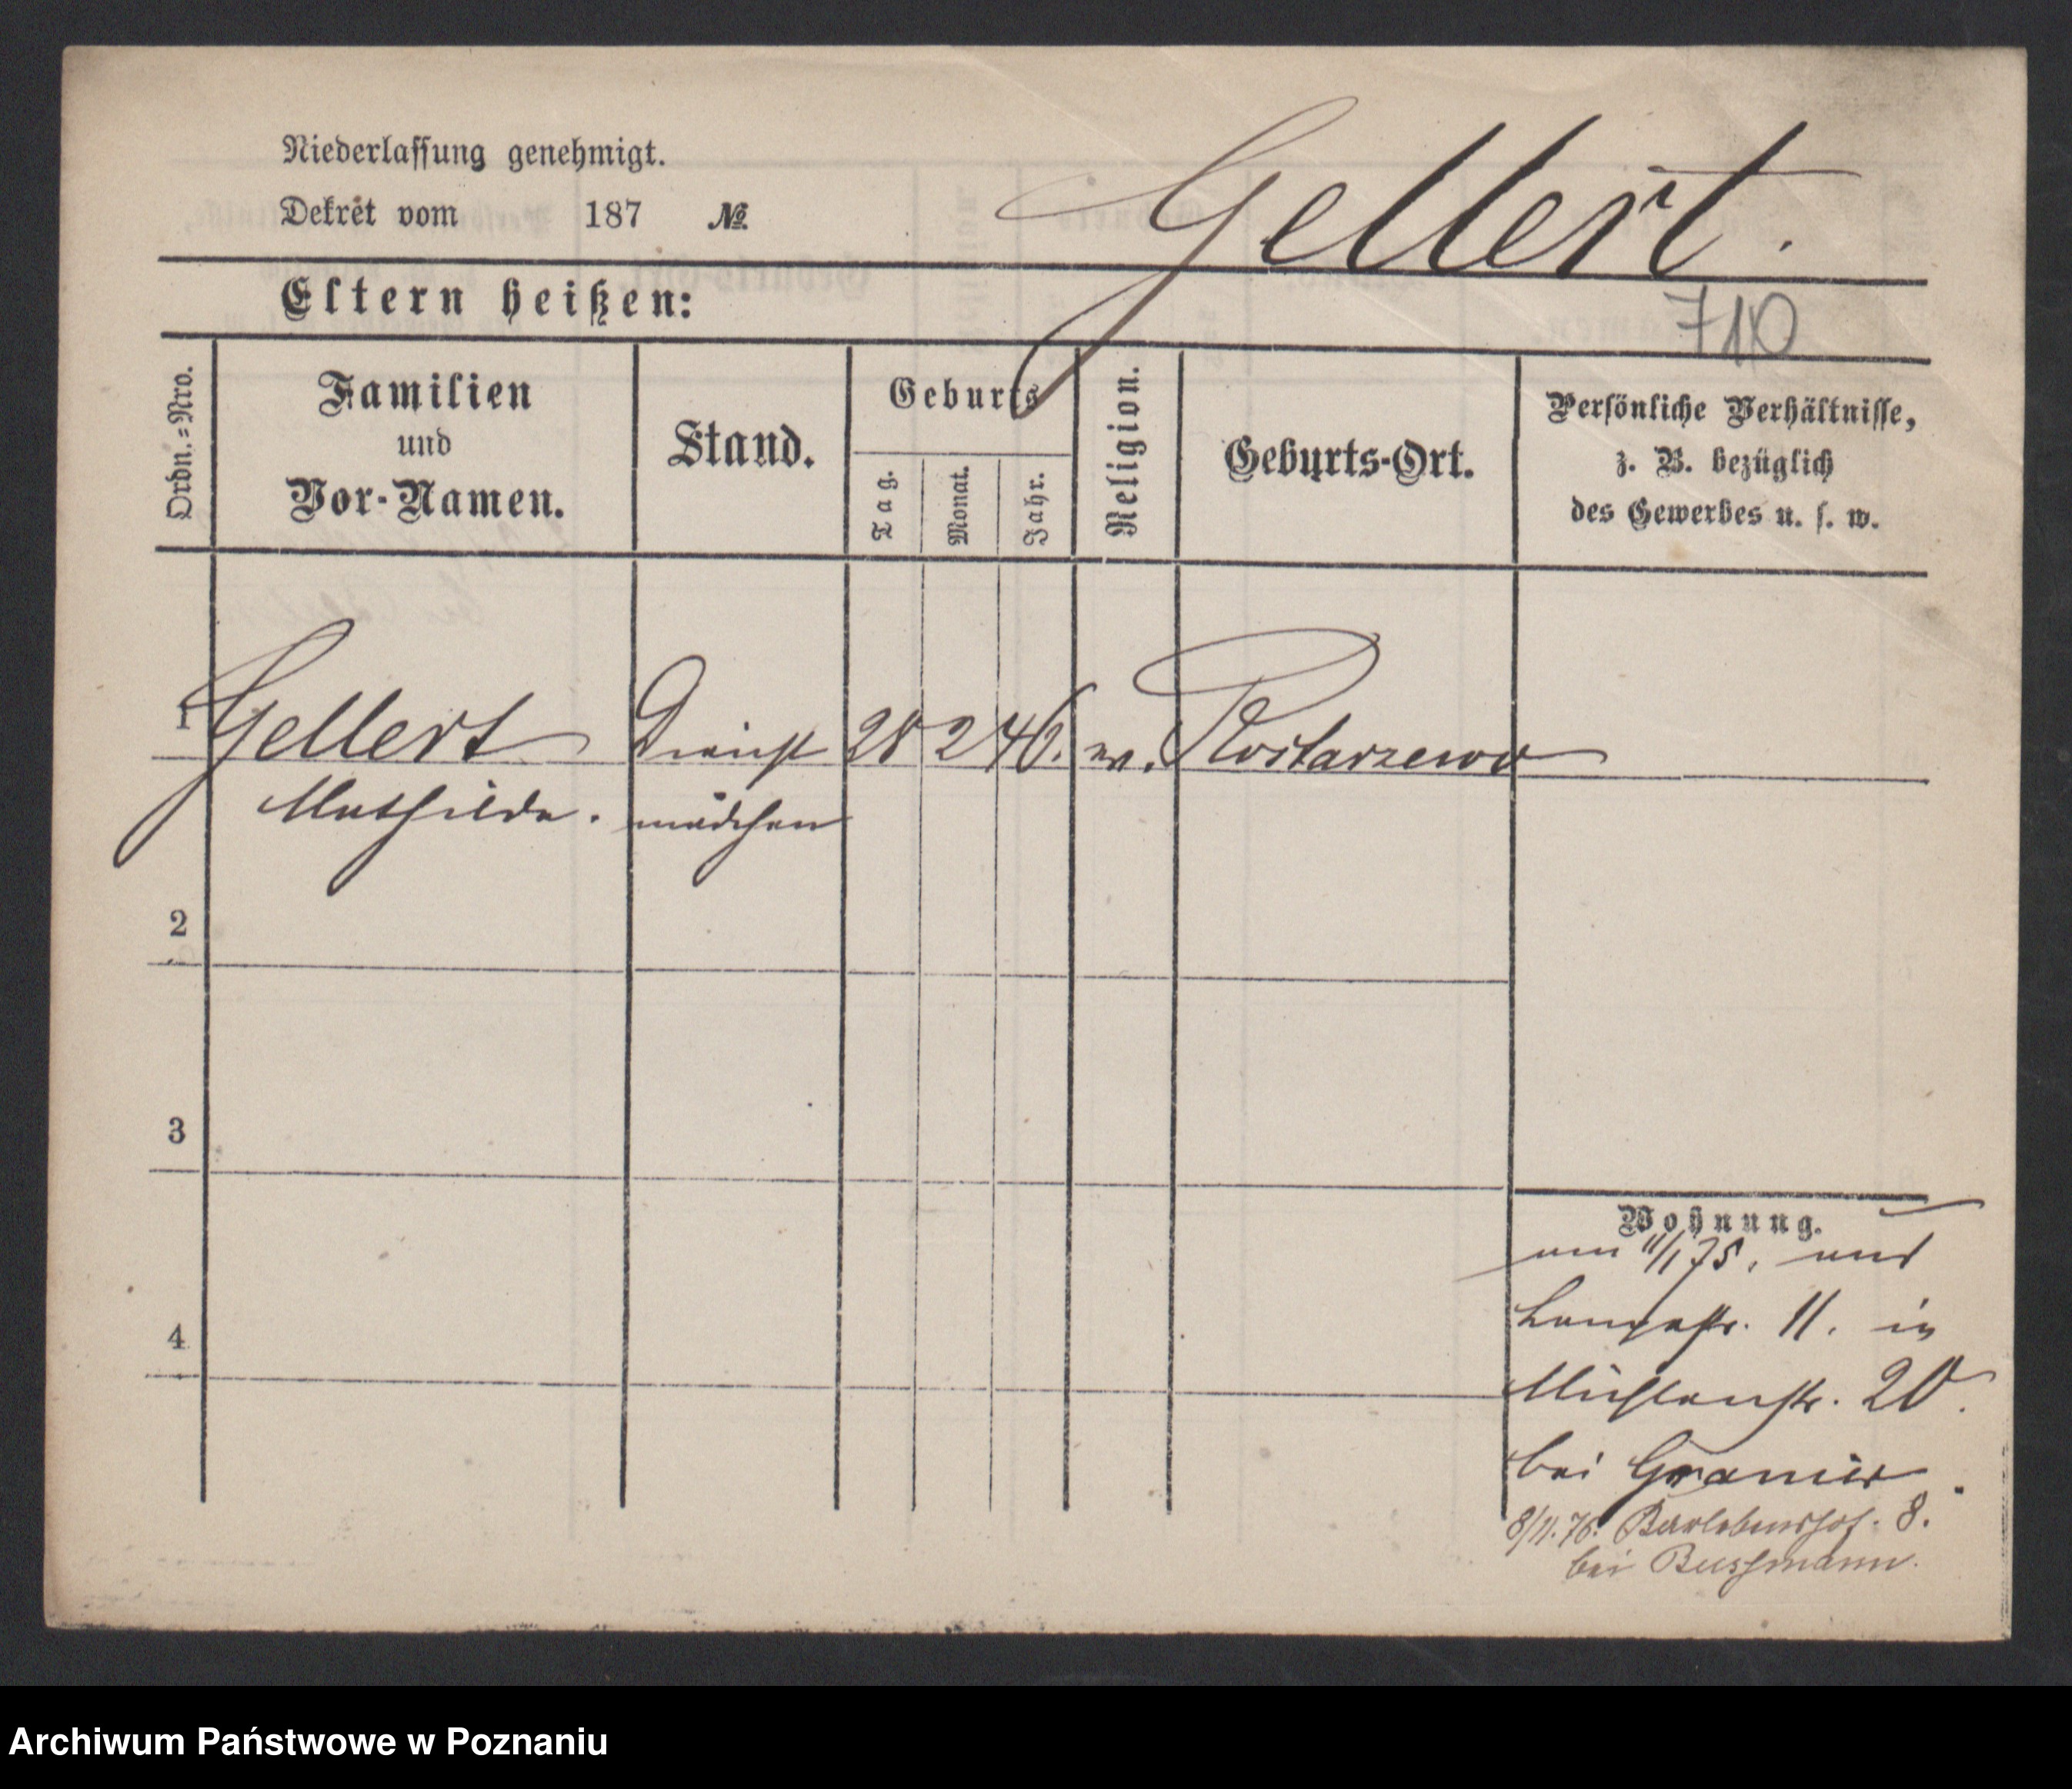 Niederlassung genehmigt.
Dekret vom 187 №.
Gellert.
Eltern heißen:
710
Ordn.=Nro.
Familien
und
Vor-Namen.
Stand.
Geburts
Tag.
Monat.
Jahr.
Religion.
Geburts-Ort.
Persönliche Verhältnisse,
z. B. bezüglich
des Gewerbes u. s. w.
1 Gellert Dienst 28 2 46. ev. Rostarzewo
Mathilde. mädchen
2
3
4
Wohnung.
am 11/1 75. aus
Langestr. 11. in
Mühlenstr. 20.
bei Gramer.
8/11. 76. Berlebenshof. 8.
bei Bussmann.
Archiwum Państwowe w Poznaniu